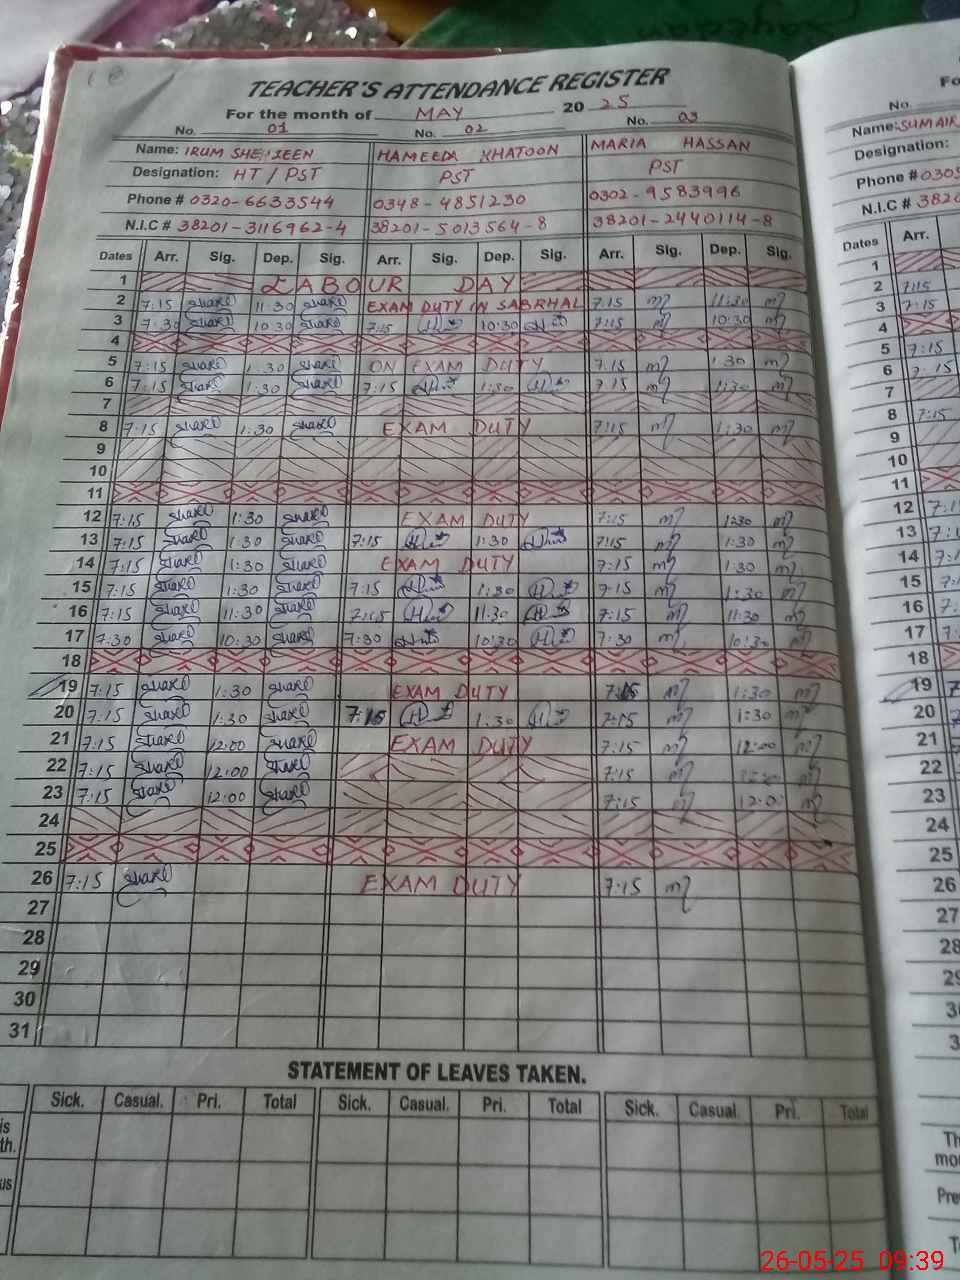 TEACHER'S ATTENDANCE REGISTER
For the month of MAY 20 25
No. 01 No. 02 No. 03
Name: IRUM SHEHZEEN HAMEEDA KHATOON MARIA HASSAN
Designation: HT / PST PST PST
Phone # 0320-6633544 0348-4851230 0302-9583996
N.I.C # 38201-3116962-4 38201-5013564-8 38201-2440114-8
Dates Arr. Sig. Dep. Sig. Arr. Sig. Dep. Sig. Arr. Sig. Dep. Sig.
1 LABOUR DAY
2 7:15 11:30 EXAM DUTY IN SABRHAL 7:15 11:30
3 7:30 10:30 7:15 10:30 7:15 10:30
4
5 7:15 1:30 ON EXAM DUTY 7:15 1:30
6 7:15 1:30 7:15 1:30 7:15 1:30
7
8 7:15 1:30 EXAM DUTY 7:15 1:30
9
10
11
12 7:15 1:30 EXAM DUTY 7:15 1:30
13 7:15 1:30 7:15 1:30 7:15 1:30
14 7:15 1:30 EXAM DUTY 7:15 1:30
15 7:15 1:30 7:15 1:30 7:15 1:30
16 7:15 11:30 7:15 11:30 7:15 11:30
17 7:30 10:30 7:30 10:30 7:30 10:30
18
19 7:15 1:30 EXAM DUTY 7:15 1:30
20 7:15 1:30 7:15 1:30 7:15 1:30
21 7:15 12:00 EXAM DUTY 7:15 12:00
22 7:15 12:00 7:15
23 7:15 12:00 7:15 12:00
24
25
26 7:15 EXAM DUTY 7:15
27
28
29
30
31
STATEMENT OF LEAVES TAKEN.
Sick. Casual. Pri. Total Sick. Casual. Pri. Total Sick. Casual. Pri. Total
No.
Name: SUMAIR
Designation:
Phone # 0305
N.I.C # 3820
Dates Arr.
1
2 7:15
3 7:15
4
5 7:15
6 7:15
7
8 7:15
9
10
11
12
13
14
15
16
17
18
19
20
21
22
23
24
25
26
27
28
29
26-05-25 09:39